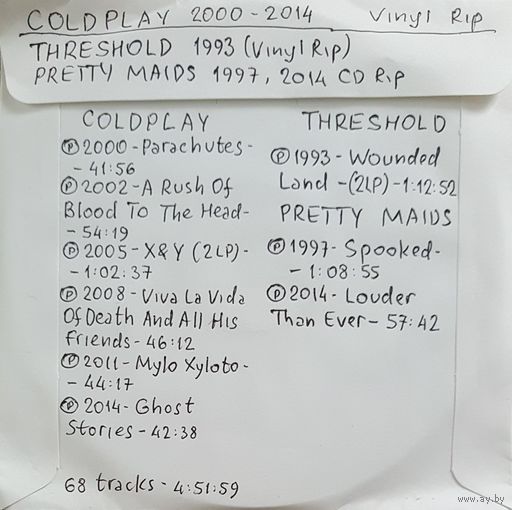 COLDPLAY 2000-2014 Vinyl Rip
THRESHOLD 1993 (Vinyl Rip)
PRETTY MAIDS 1997, 2014 CD Rip
COLDPLAY
Ⓟ 2000-Parachutes-
- 41:56
Ⓟ 2002-A Rush Of
Blood To The Head-
- 54:19
Ⓟ 2005-X&Y (2LP)-
- 1:02:37
Ⓟ 2008-Viva La Vida
Of Death And All His
Friends-46:12
Ⓟ 2011-Mylo Xyloto-
- 44:17
Ⓟ 2014-Ghost
Stories-42:38
68 tracks-4:51:59
THRESHOLD
Ⓟ 1993-Wounded
Land-(2LP)-1:12:52
PRETTY MAIDS
Ⓟ 1997-Spooked-
- 1:08:55
Ⓟ 2014-Louder
Than Ever-57:42
www.ay.by